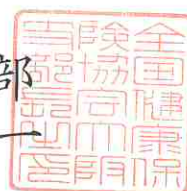 部
一
全国健康保
険協会大阪
支部長之印